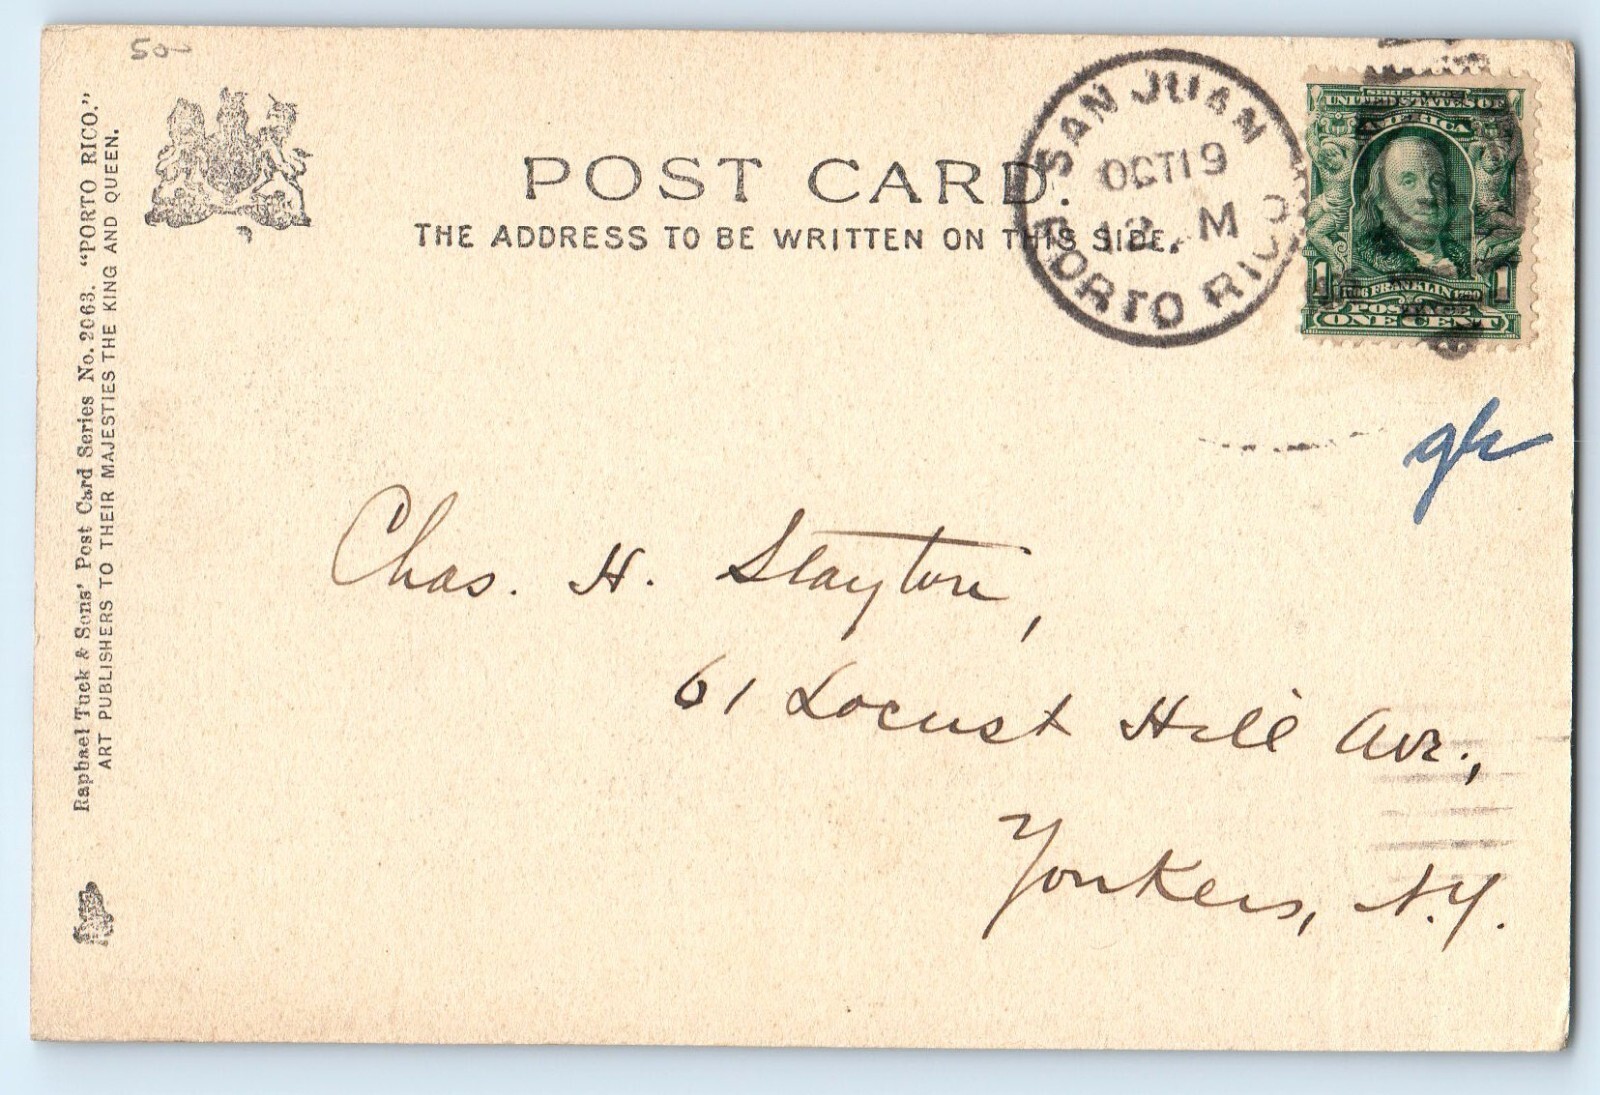 50-
Raphael Tuck & Sons' Post Card Series No. 2063. "PORTO RICO."
ART PUBLISHERS TO THEIR MAJESTIES THE KING AND QUEEN.
POST CARD.
THE ADDRESS TO BE WRITTEN ON THIS SIDE.
SAN JUAN
OCT 19
12 M
PORTO RICO
UNITED STATES OF
AMERICA
1 FRANKLIN 1790 1
POSTAGE
ONE CENT
Chas. H. Slayton,
61 Locust Hill Ave.,
Yonkers, N.Y.